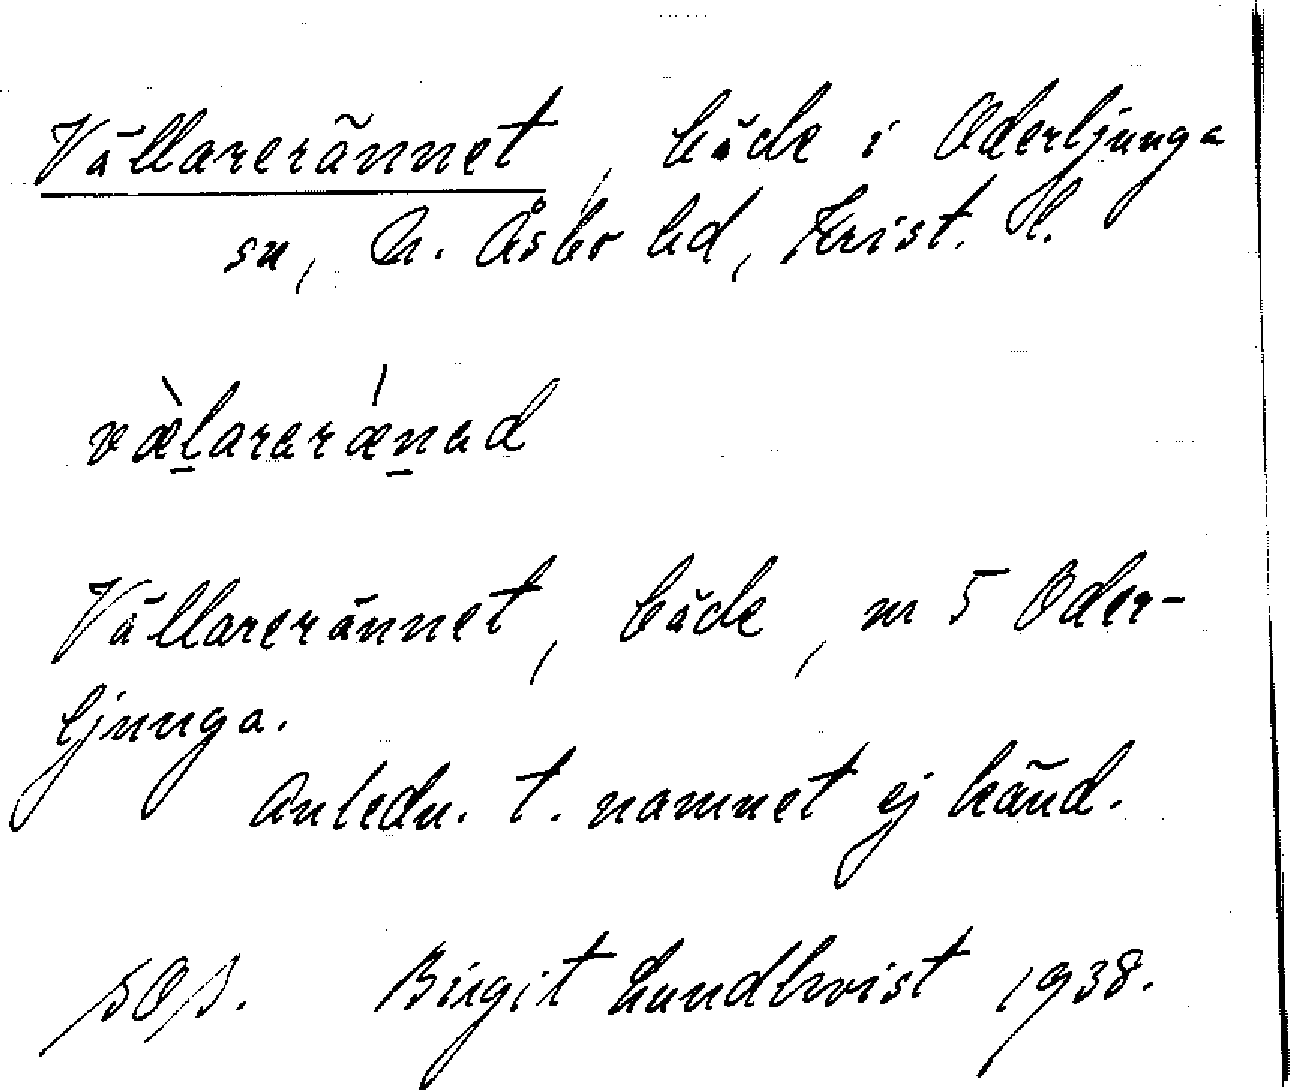 Vällarerännet, bäck i Oderljunga
sn, N. Åsbo hd, Krist. l.
vælararænad
Vällarerännet, bäck, m 5 Oder-
ljunga.
Anledn. t. namnet ej känd.
Birgit Lundkvist 1938.